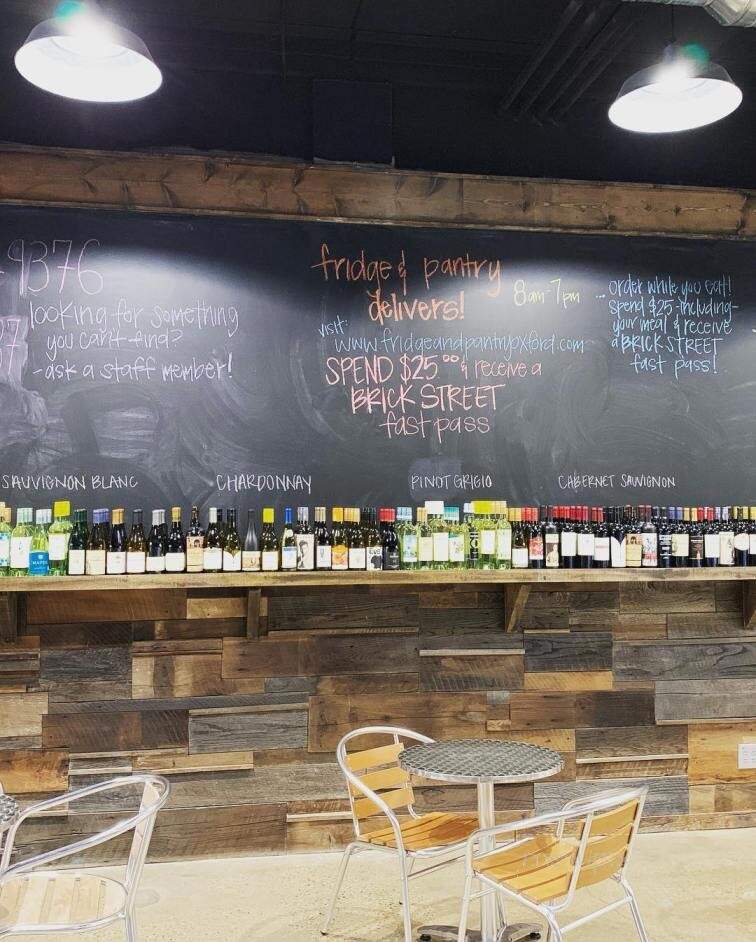 -9376
looking for something
you can't find?
-ask a staff member!
fridge & pantry
delivers!
8am-7pm
visit:
www.fridgeandpantryoxford.com
SPEND $25.00 & receive a
BRICK STREET
fast pass
order while you eat!
spend $25-including-
your meal & receive
a BRICK STREET
fast pass!
SAUVIGNON BLANC
CHARDONNAY
PINOT GRIGIO
CABERNET SAUVIGNON